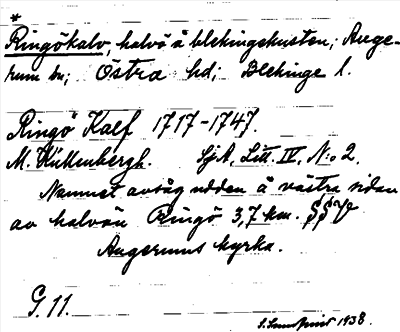 *
Ringökalv, halvö å blekingskusten; Auge-
rum sn; Östra hd; Blekinge l.
Ringö Kalf 1717-1747.
M. Küllenbergh. SjA, Litt. IV, N:o 2.
Namnet avsåg udden å västra sidan
av halvön Ringö 3,7 km. SSV
Augerums kyrka.
G. 11.
1938.